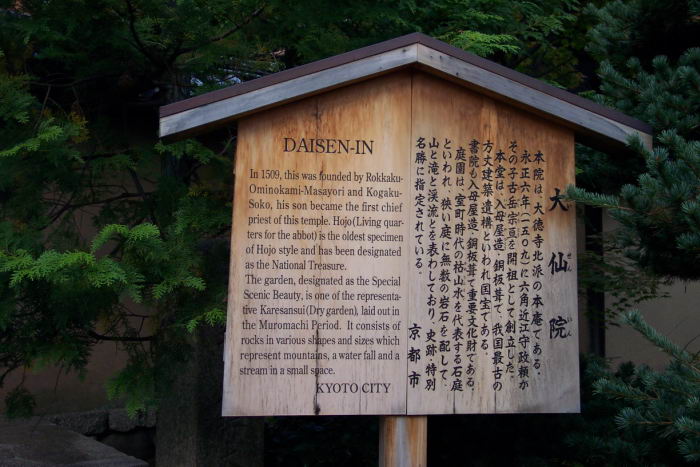 DAISEN-IN
In 1509, this was founded by Rokkaku-
Ominokami-Masayori and Kogaku-
Soko, his son became the first chief
priest of this temple. Hojo(Living quar-
ters for the abbot) is the oldest specimen
of Hojo style and has been designated
as the National Treasure.
The garden, designated as the Special
Scenic Beauty, is one of the representa-
tive Karesansui(Dry garden), laid out in
the Muromachi Period. It consists of
rocks in various shapes and sizes which
represent mountains, a water fall and a
stream in a small space.
KYOTO CITY
大仙院
せん
いん
本院は、大徳寺北派の本庵である。
永正六年(一五〇九)に六角近江守政頼が
その子古岳宗亘を開祖として創立した。
本堂は、入母屋造、銅板葺で、我国最古の
方丈建築遺構といわれ国宝である。
書院も入母屋造、銅板葺で重要文化財である。
庭園は、室町時代の枯山水を代表する石庭
といわれ、狭い庭に無数の岩石を配して、
山と滝と渓流とを表わしており、史跡・特別
名勝に指定されている。
京都市